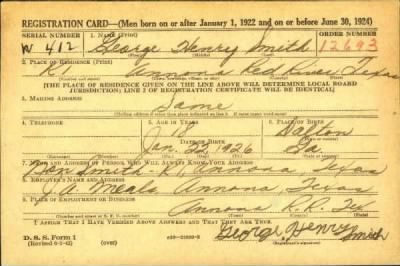 REGISTRATION CARD—(Men born on or after January 1, 1922 and on or before June 30, 1924)
SERIAL NUMBER 1. NAME (Print) ORDER NUMBER
W 412 George Henry Smith 12693
2. PLACE OF RESIDENCE (Print)
R1 Annona Red River Texas
(THE PLACE OF RESIDENCE GIVEN ON THE LINE ABOVE WILL DETERMINE LOCAL BOARD
JURISDICTION; LINE 2 OF REGISTRATION CERTIFICATE WILL BE IDENTICAL)
3. MAILING ADDRESS
Same
4. TELEPHONE 5. AGE IN YEARS 6. PLACE OF BIRTH
18 Dalton
DATE OF BIRTH
Jan. 22, 1926 Ga
7. NAME AND ADDRESS OF PERSON WHO WILL ALWAYS KNOW YOUR ADDRESS
Don Smith - R1, Annona, Texas
8. EMPLOYER'S NAME AND ADDRESS
J. A. Meals, Annona, Texas
9. PLACE OF EMPLOYMENT OR BUSINESS
Annona R.R. Tex
I AFFIRM THAT I HAVE VERIFIED ABOVE ANSWERS AND THAT THEY ARE TRUE.
D. S. S. Form 1 George Henry
(over) Smith